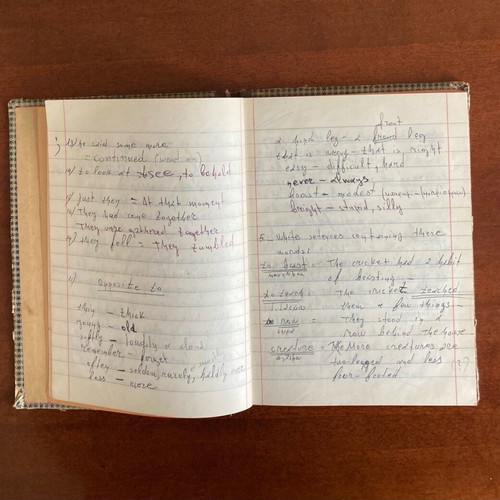 13/ he said some more
= continued (went on)
14/ to look at = to see, to behold
15/ just then = At that moment
16/ They had come together
They were gathered together
17/ they fell = They tumbled
opposite to
thin — thick
young — old
softly — loudly
remember — forget
often — seldom, rarely, hardly ever
less — more
front
2 high leg — 2 front leg
that is wrong — that is right
easy — difficult, hard
never — always
boast — modest
bright — stupid, silly
5 — Write sentences containing these
words:
to boast = The cricket had a habit
of boasting
to teach = The cricket teached
them a few things
row = They stood in a
row behind the house
creature = The More creatures are
two legged and less
four-footed